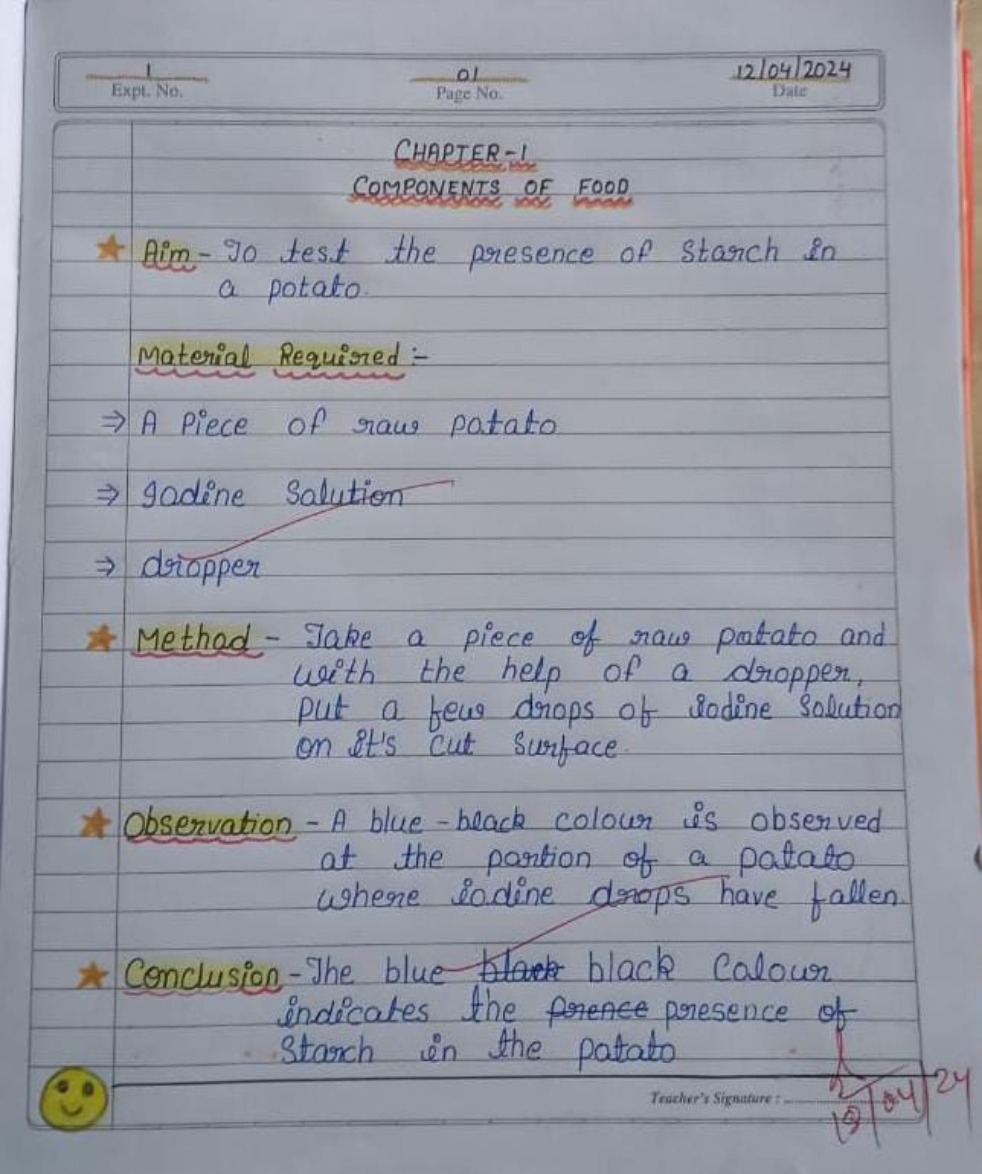 1
Expt. No.
01
Page No.
12/04/2024
Date
CHAPTER-1
COMPONENTS OF FOOD
Aim - To test the presence of Starch in
a potato.
Material Required :-
⇒ A Piece of raw potato
⇒ Iodine Solution
⇒ dropper
Method - Take a piece of raw potato and
with the help of a dropper,
put a few drops of iodine solution
on it's cut surface.
Observation - A blue-black colour is observed
at the portion of a potato
where iodine drops have fallen.
Conclusion - The blue black black Colour
indicates the prence presence of
Starch in the potato
Teacher's Signature :
19/04/24